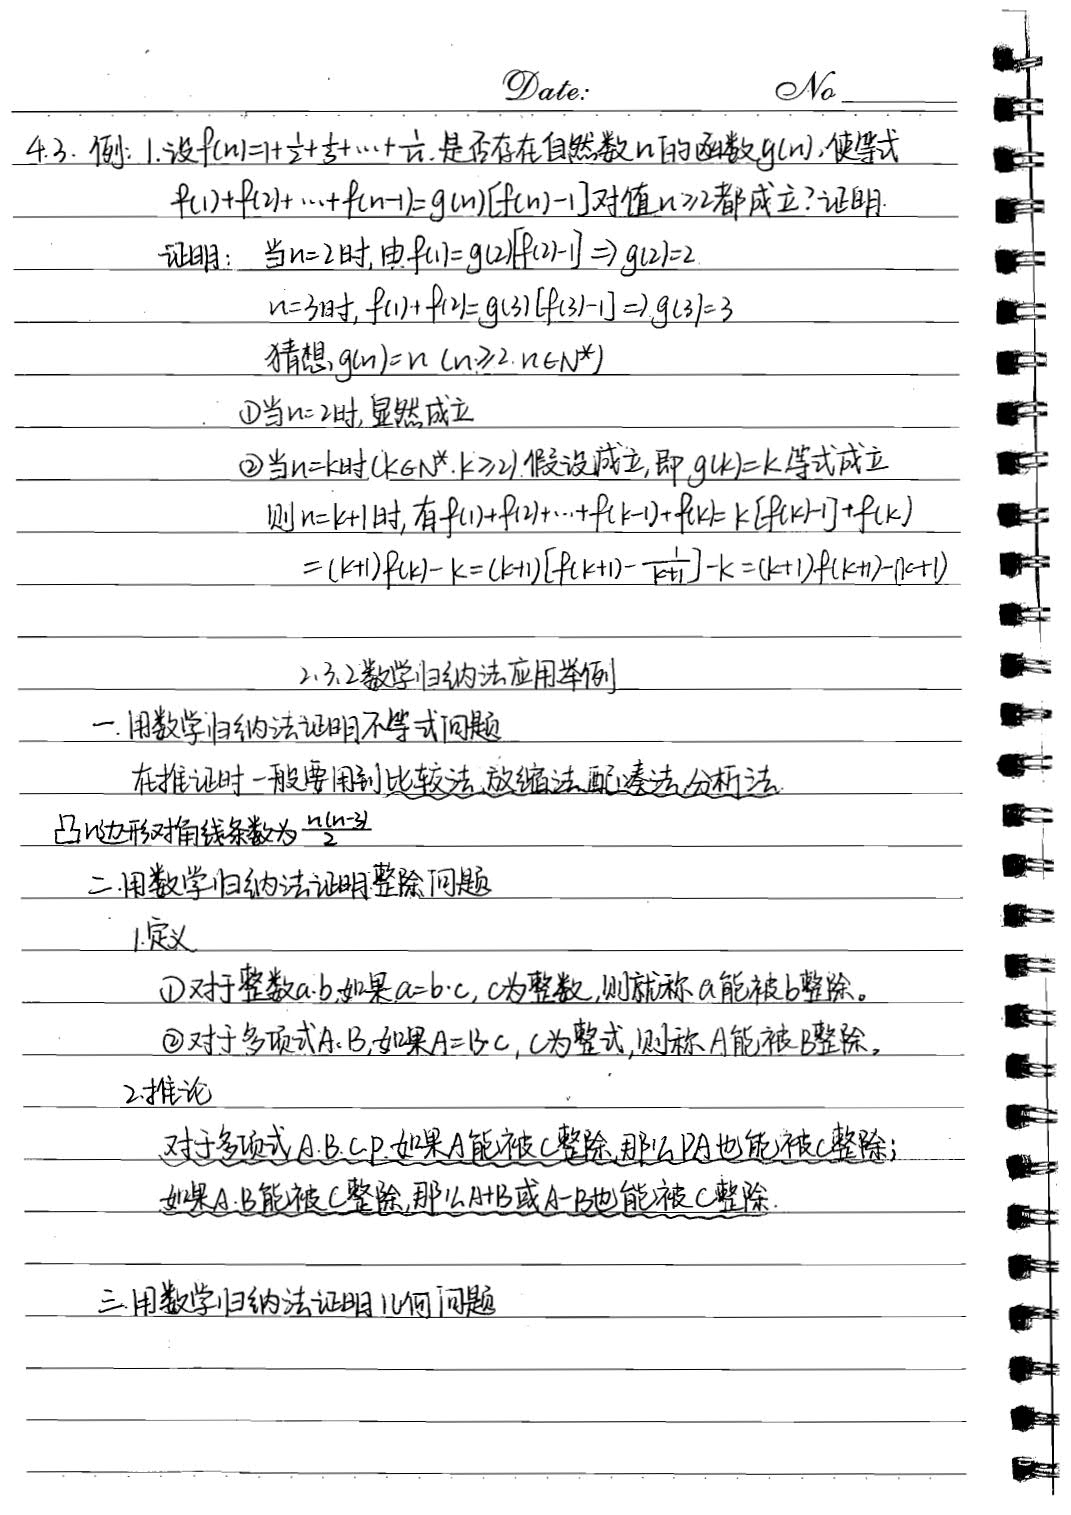 Date: No
4.3. 例: 1.设f(n)=1+1/2+1/3+…+1/n.是否存在自然数n的函数g(n),使等式
f(1)+f(2)+…+f(n-1)=g(n)[f(n)-1]对值n≥2都成立?证明.
证明: 当n=2时,由f(1)=g(2)[f(2)-1]⇒g(2)=2
n=3时,f(1)+f(2)=g(3)[f(3)-1]⇒g(3)=3
猜想,g(n)=n (n≥2.n∈N*)
①当n=2时,显然成立
②当n=k时(k∈N*.k≥2).假设成立,即g(k)=k等式成立
则n=k+1时,有f(1)+f(2)+…+f(k-1)+f(k)=k[f(k)-1]+f(k)
=(k+1)f(k)-k=(k+1)[f(k+1)-1/(k+1)]-k=(k+1)f(k+1)-(k+1)
2.3.2数学归纳法应用举例
一.用数学归纳法证明不等式问题
在推证时一般要用到比较法,放缩法,配凑法,分析法.
凸n边形对角线条数为n(n-3)/2
二.用数学归纳法证明整除问题
1.定义
①对于整数a.b,如果a=b·c,c为整数,则就称a能被b整除。
②对于多项式A.B,如果A=B·C,C为整式,则称A能被B整除。
2.推论
对于多项式A.B.C.P.如果A能被C整除,那么PA也能被C整除;
如果A.B能被C整除,那么A+B或A-B也能被C整除.
三.用数学归纳法证明几何问题